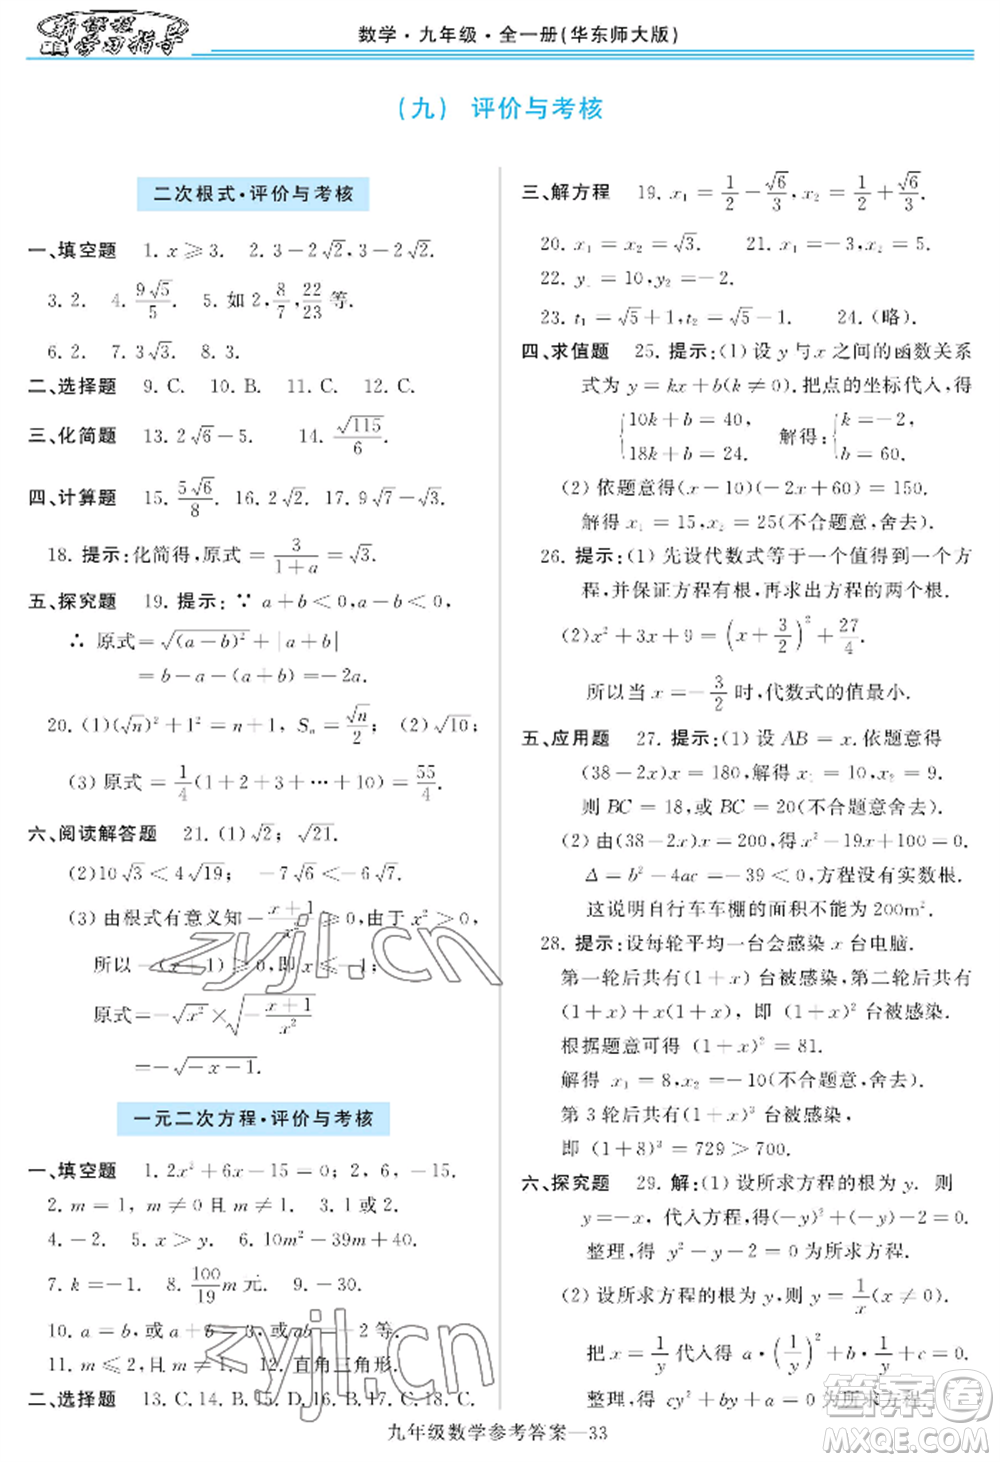 新课程
学习指导
数学·九年级·全一册(华东师大版)
(九) 评价与考核
二次根式·评价与考核
一、填空题 1. x⩾3. 2. 3−2√2, 3−2√2.
3. 2. 4. 9√5/5. 5. 如 2, 8/7, 22/23 等.
6. 2. 7. 3√3. 8. 3.
二、选择题 9. C. 10. B. 11. C. 12. C.
三、化简题 13. 2√6−5. 14. √115/6.
四、计算题 15. 5√6/8. 16. 2√2. 17. 9√7−√3.
18. 提示:化简得,原式=3/(1+a)=√3.
五、探究题 19. 提示:∵ a+b<0, a−b<0,
∴ 原式=√(a−b)²+|a+b|
=b−a−(a+b)=−2a.
20. (1)(√n)²+1²=n+1, Sₙ=√n/2; (2)√10;
(3) 原式=1/4(1+2+3+…+10)=55/4.
六、阅读解答题 21. (1)√2; √21.
(2)10√3<4√19; −7√6<−6√7.
(3) 由根式有意义知−(x+1)/x²⩾0, 由于 x²>0,
所以−(x+1)⩾0,即 x⩽−1;
原式=−√x²×√−(x+1)/x²
=−√−x−1.
一元二次方程·评价与考核
一、填空题 1. 2x²+6x−15=0; 2, 6, −15.
2. m=1, m≠0 且 m≠1. 3. 1 或 2.
4. −2. 5. x>y. 6. 10m²−39m+40.
7. k=−1. 8. 100/19 m 元. 9. −30.
10. a=b,或 a+b=3,或 ab=−2 等.
11. m⩽2,且 m≠1. 12. 直角三角形.
二、选择题 13. C. 14. B. 15. D. 16. C. 17. C. 18. C.
三、解方程 19. x₁=1/2−√6/3, x₂=1/2+√6/3.
20. x₁=x₂=√3. 21. x₁=−3, x₂=5.
22. y₁=10, y₂=−2.
23. t₁=√5+1, t₂=√5−1. 24. (略).
四、求值题 25. 提示:(1) 设 y 与 x 之间的函数关系
式为 y=kx+b(k≠0). 把点的坐标代入,得
{10k+b=40, 18k+b=24. 解得:{k=−2, b=60.
(2) 依题意得(x−10)(−2x+60)=150.
解得 x₁=15, x₂=25(不合题意,舍去).
26. 提示:(1) 先设代数式等于一个值得到一个方
程,并保证方程有根,再求出方程的两个根.
(2)x²+3x+9=(x+3/2)²+27/4.
所以当 x=−3/2 时,代数式的值最小.
五、应用题 27. 提示:(1) 设 AB=x. 依题意得
(38−2x)x=180,解得 x₁=10, x₂=9.
则 BC=18,或 BC=20(不合题意舍去).
(2) 由(38−2x)x=200,得 x²−19x+100=0.
Δ=b²−4ac=−39<0,方程没有实数根.
这说明自行车车棚的面积不能为 200m².
28. 提示:设每轮平均一台会感染 x 台电脑.
第一轮后共有(1+x) 台被感染,第二轮后共有
(1+x)+x(1+x),即 (1+x)² 台被感染.
根据题意可得 (1+x)²=81.
解得 x₁=8, x₂=−10(不合题意,舍去).
第 3 轮后共有(1+x)³ 台被感染,
即 (1+8)³=729>700.
六、探究题 29. 解:(1) 设所求方程的根为 y. 则
y=−x,代入方程,得(−y)²+(−y)−2=0.
整理,得 y²−y−2=0 为所求方程.
(2) 设所求方程的根为 y,则 y=1/x(x≠0).
把 x=1/y 代入得 a·(1/y)²+b·1/y+c=0.
整理,得 cy²+by+a=0 为所求方程.
九年级数学参考答案—33
zyjl.cn
zyjl.cn
答案圈
MXQE.COM